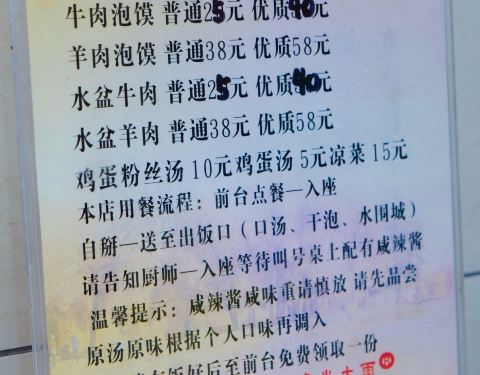 牛肉泡馍 普通25元 优质40元
羊肉泡馍 普通38元 优质58元
水盆牛肉 普通25元 优质40元
水盆羊肉 普通38元 优质58元
鸡蛋粉丝汤 10元鸡蛋汤 5元凉菜 15元
本店用餐流程：前台点餐—入座
自掰—送至出饭口（口汤、干泡、水围城）
请告知厨师—入座等待叫号桌上配有咸辣酱
温馨提示：咸辣酱咸味重请慎放 请先品尝
原汤原味根据个人口味再调入
饭好后至前台免费领取一份